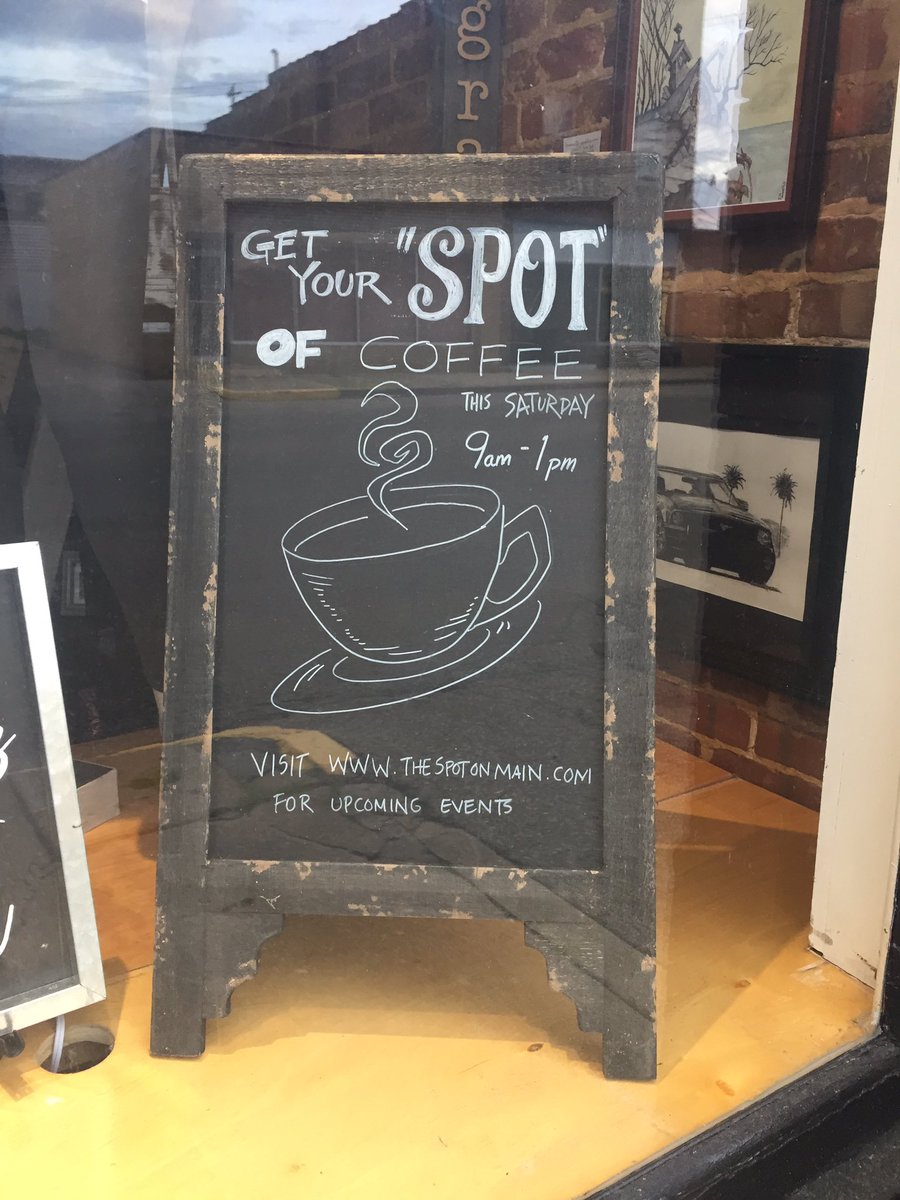 GET
YOUR "SPOT"
OF COFFEE
THIS SATURDAY
9am-1pm
VISIT WWW.THESPOTONMAIN.COM
FOR UPCOMING EVENTS
gra